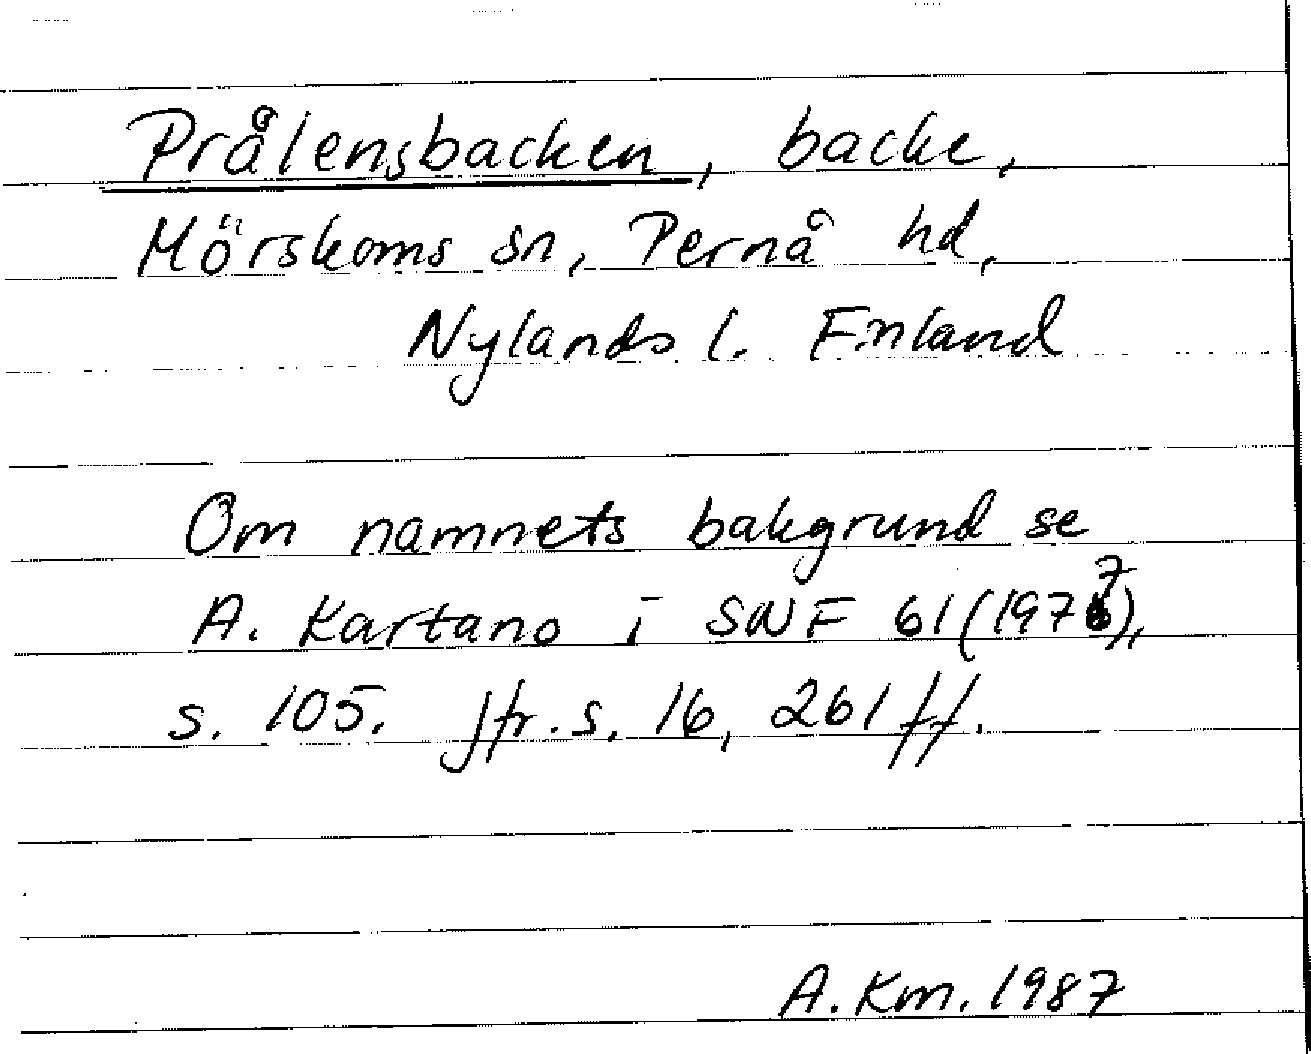 Prålensbacken, backe,
Mörskoms sn, Pernå hd,
Nylands l. Finland
Om namnets bakgrund se
A. Kartano i SNF 61 (1977),
s. 105. Jfr. s. 16, 261 ff.
A. Km. 1987